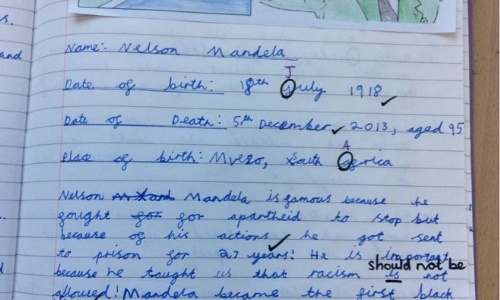 s.
and
Name: Nelson Mandela
J
Date of birth: 18th July 1918
Date of Death: 5th December 2013, aged 95
A
Place of birth: Mvezo, South africa
Nelson Mandela is famous because he
fought for for apartheid to stop but
because of his actions he got sent
to prison for 27 years! He is important
should not be
because he taught us that racism is
allowed! Mandela became the first black